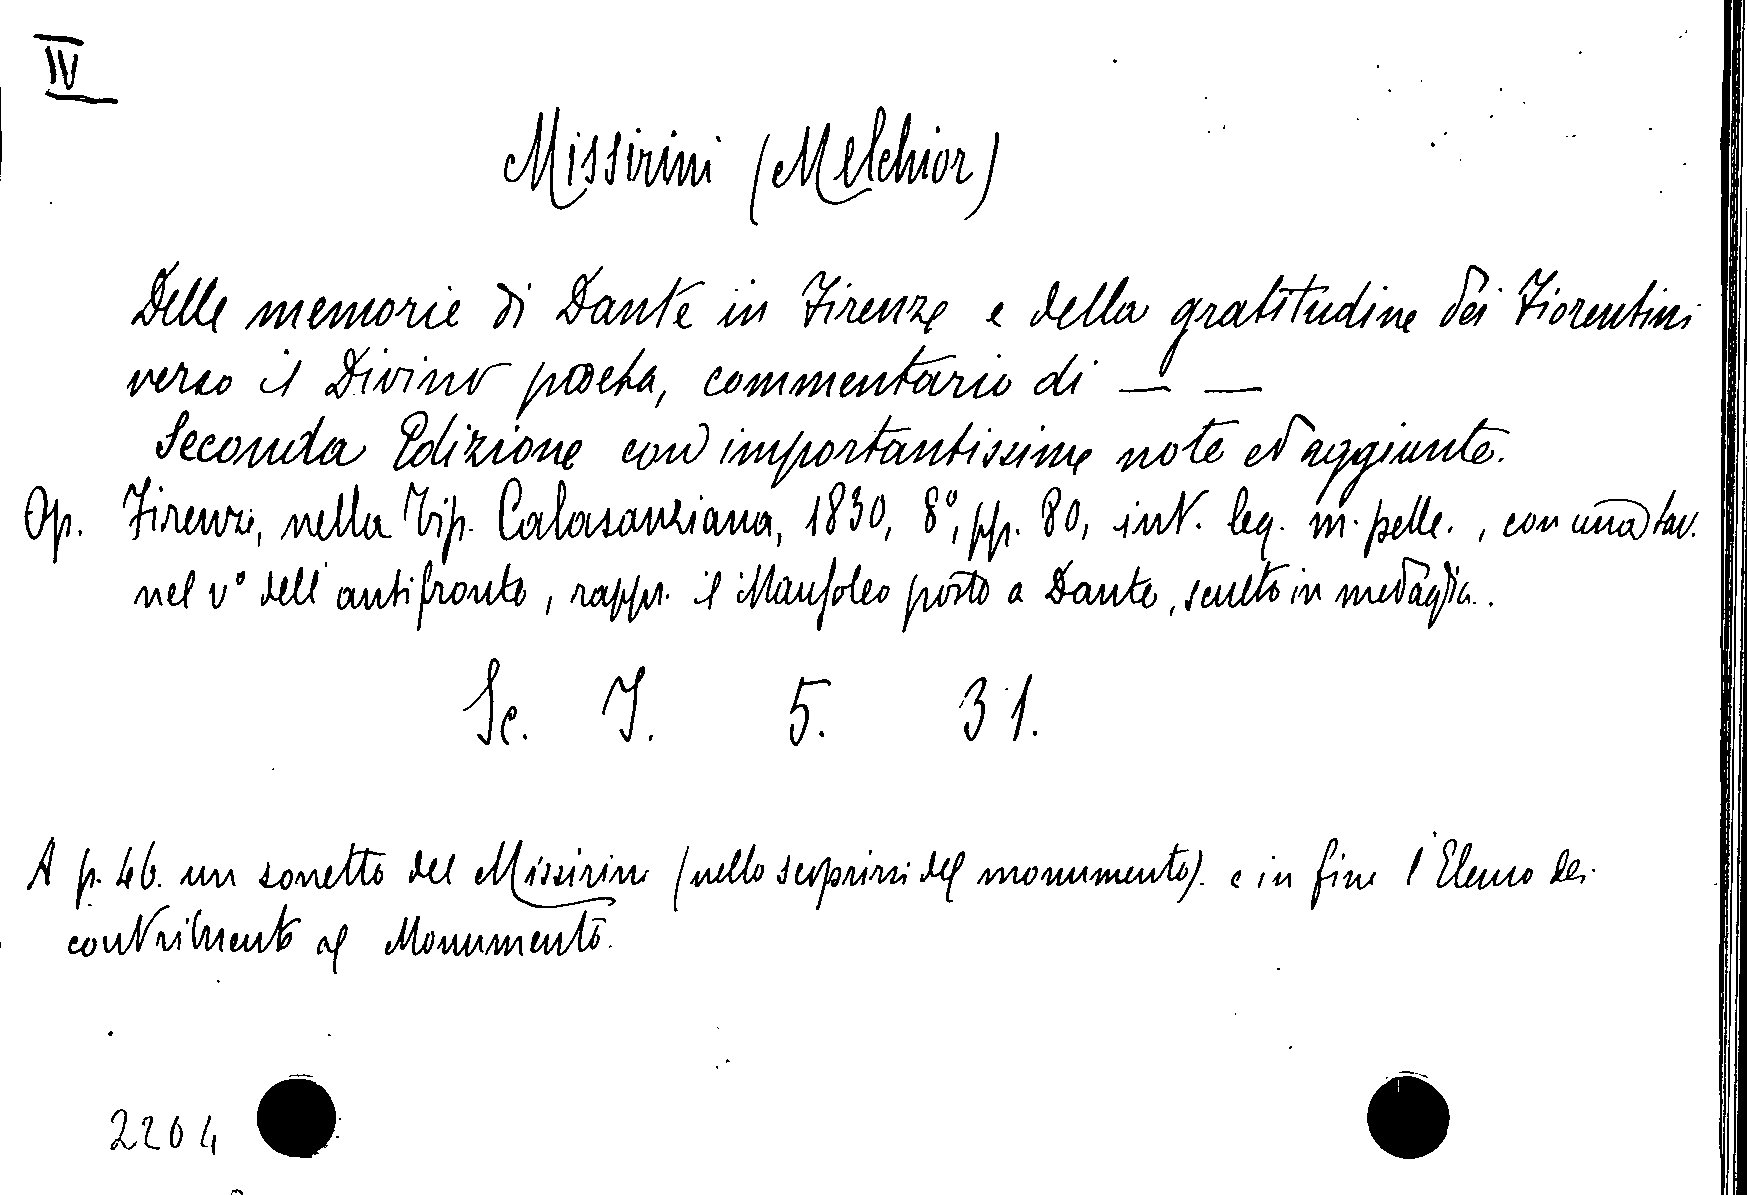 IV
Missirini (Melchior)
Delle memorie di Dante in Firenze e della gratitudine dei Fiorentini
verso il Divino poeta, commentario di — —
Seconda Edizione con importantissime note ed aggiunte.
Op. Firenze, nella Tip. Calasanziana, 1830, 8°, pp. 80, int. leg. m. pelle., con una tav.
nel v° dell'antifronte, rappr. il Mausoleo posto a Dante, sculto in medaglia.
Sc. I. 5. 31.
A p. 46. un sonetto del Missirini (nello scoprirsi del monumento). e in fine l'Elenco dei
contribuenti al Monumento.
2204